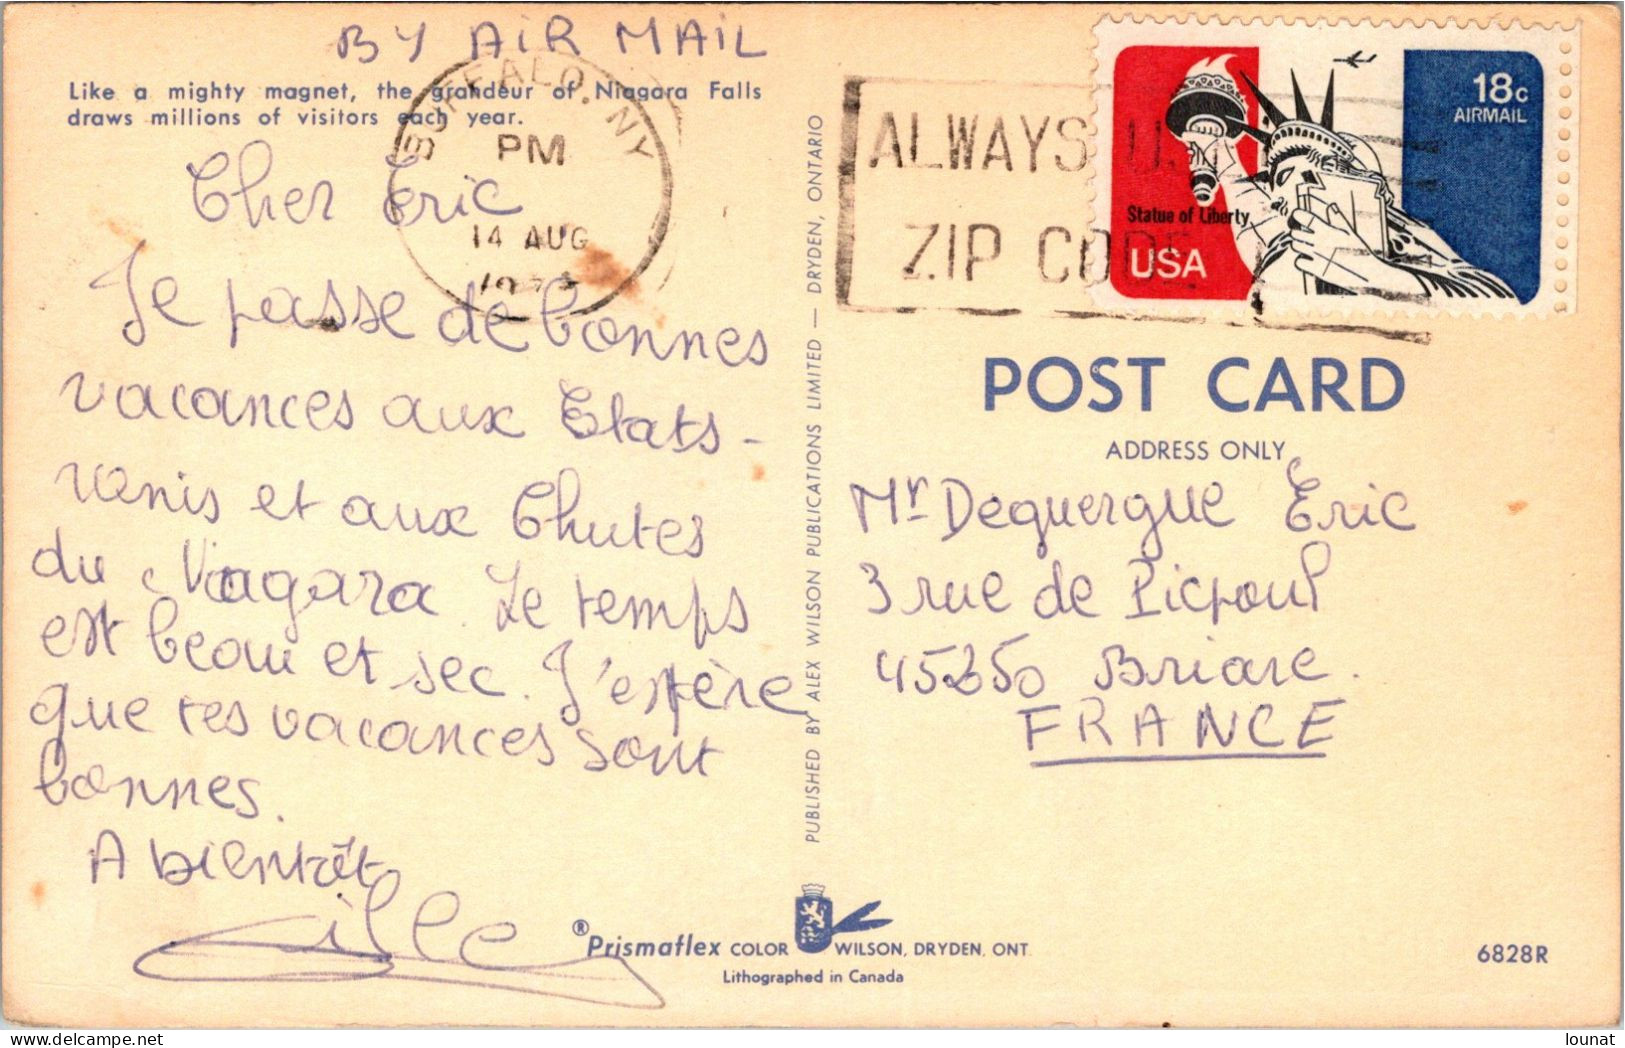 BY AIR MAIL
Like a mighty magnet, the grandeur of Niagara Falls
draws millions of visitors each year.
BUFFALO, NY
PM
14 AUG
Cher Eric
Je passe de bonnes
vacances aux Etats-
Unis et aux Chutes
du Niagara. Le temps
est beau et sec. J'espère
que tes vacances sont
bonnes.
A bientôt
PUBLISHED BY ALEX WILSON PUBLICATIONS LIMITED — DRYDEN, ONTARIO
ALWAYS U
ZIP CODE
18c
AIRMAIL
Statue of Liberty
USA
POST CARD
ADDRESS ONLY
Mr Dequergue Eric
3 rue de Picpoul
45250 Briare.
FRANCE
®Prismaflex COLOR WILSON, DRYDEN, ONT.
Lithographed in Canada
6828R
lounat